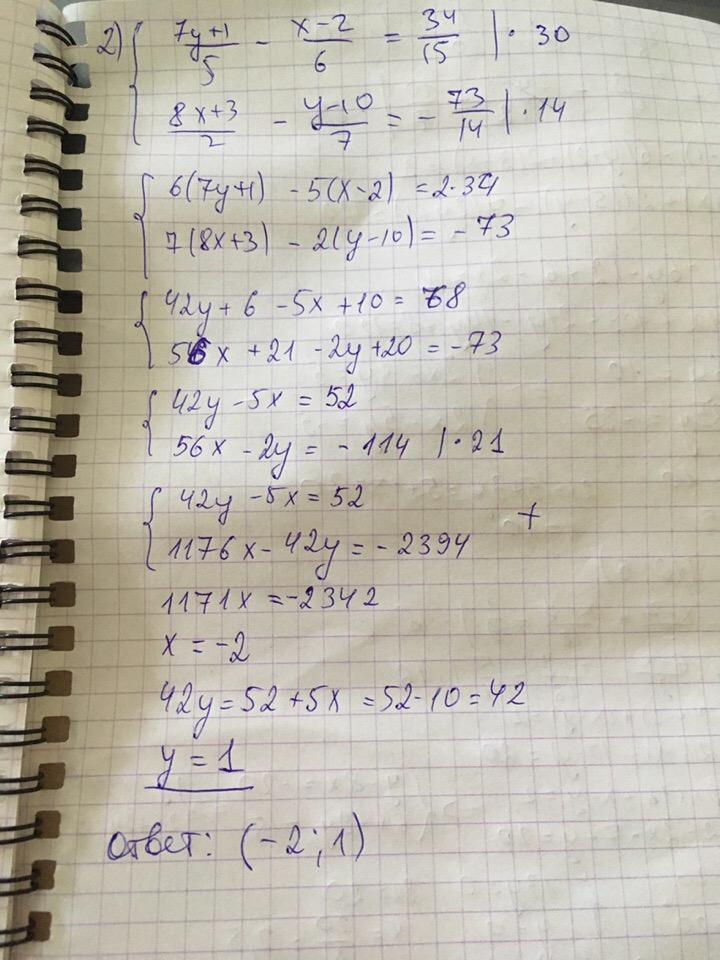 2) { (7y+1)/5 - (x-2)/6 = 34/15 | · 30
(8x+3)/2 - (y-10)/7 = - 73/14 | · 14
{ 6(7y+1) - 5(x-2) = 2·34
7(8x+3) - 2(y-10) = - 73
{ 42y + 6 - 5x + 10 = 68
56x + 21 - 2y + 20 = -73
{ 42y - 5x = 52
56x - 2y = - 114 | · 21
{ 42y - 5x = 52 +
1176x - 42y = - 2394
1171x = -2342
x = -2
42y = 52 + 5x = 52 - 10 = 42
y = 1
Ответ: (-2; 1)